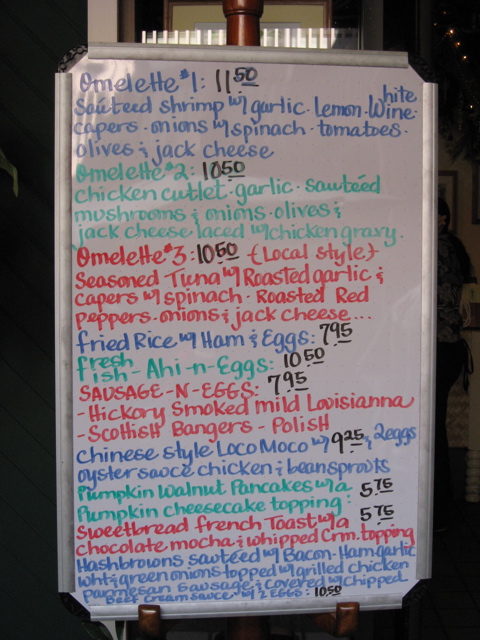 Omelette #1: 11.50
Sautéed shrimp w/ garlic. Lemon. White Wine.
capers. onions w/ spinach. tomatoes.
olives & jack cheese
Omelette #2: 10.50
chicken cutlet. garlic. sautéed
mushrooms & onions. olives &
jack cheese laced w/ chicken gravy.
Omelette #3: 10.50 {Local style}
Seasoned Tuna w/ Roasted garlic &
capers w/ spinach. Roasted Red
peppers. onions & jack cheese...
fried Rice w/ Ham & Eggs: 7.95
fresh
Fish - Ahi-n-Eggs: 10.50
SAUSAGE-N-EGGS: 7.95
- Hickory Smoked mild Louisianna
- Scottish Bangers - Polish
Chinese style Loco Moco w/ 9.25 & 2 eggs
oyster sauce chicken & beansprouts
Pumpkin Walnut Pancakes w/ a 5.75
Pumpkin cheesecake topping:
Sweetbread french Toast w/ a 5.75
chocolate mocha & whipped Crm. topping
Hashbrowns sautéed w/ Bacon. Ham. garlic
wht & green onions. topped w/ grilled chicken
parmesan Sausage & covered w/ chipped
Beef Cream sauce w/ 2 EGGS: 10.50